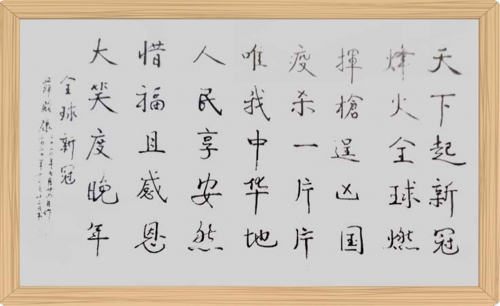 天下起新冠
烽火全球燃
揮槍逞凶国
疫杀一片片
唯我中华地
人民享安然
惜福且感恩
大笑度晚年
全球新冠